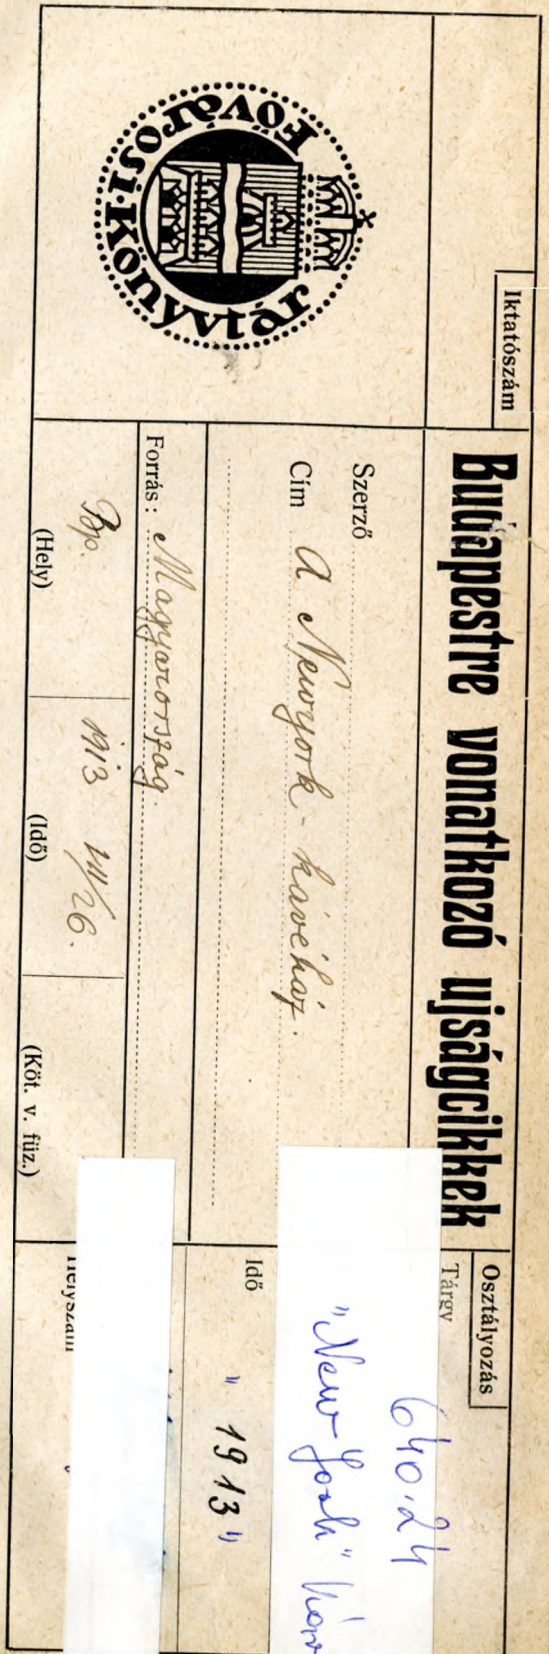 Iktatószám
Fővárosi Könyvtár
Budapestre vonatkozó ujságcikkek
Szerző
Cím A Newyork-kávéház.
Forrás: Magyarország.
Bp. 1913 VII/26.
(Hely) (Idő) (Köt. v. füz.)
Osztályozás
Tárgy 640.24
"New York" káv
Idő "1913"
Helyszám